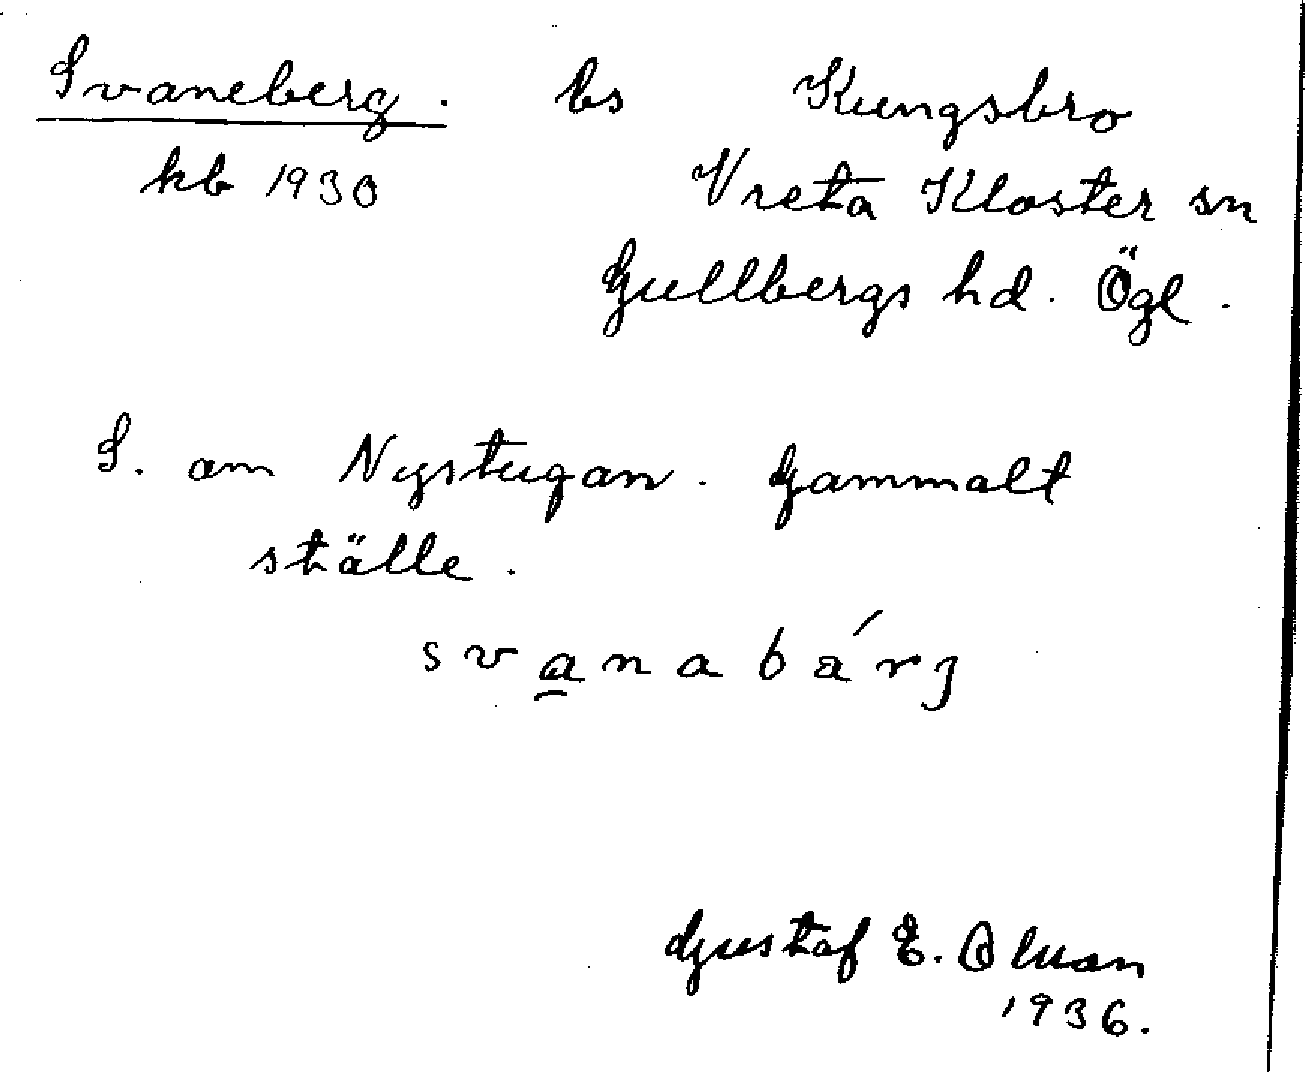 Svaneberg. ls Kungsbro
kb 1930 Vreta Kloster sn
Gullbergs hd. Ögl.
S. om Nystugan. Gammalt
ställe.
svanabárj
Gustaf E. Olsson
1936.